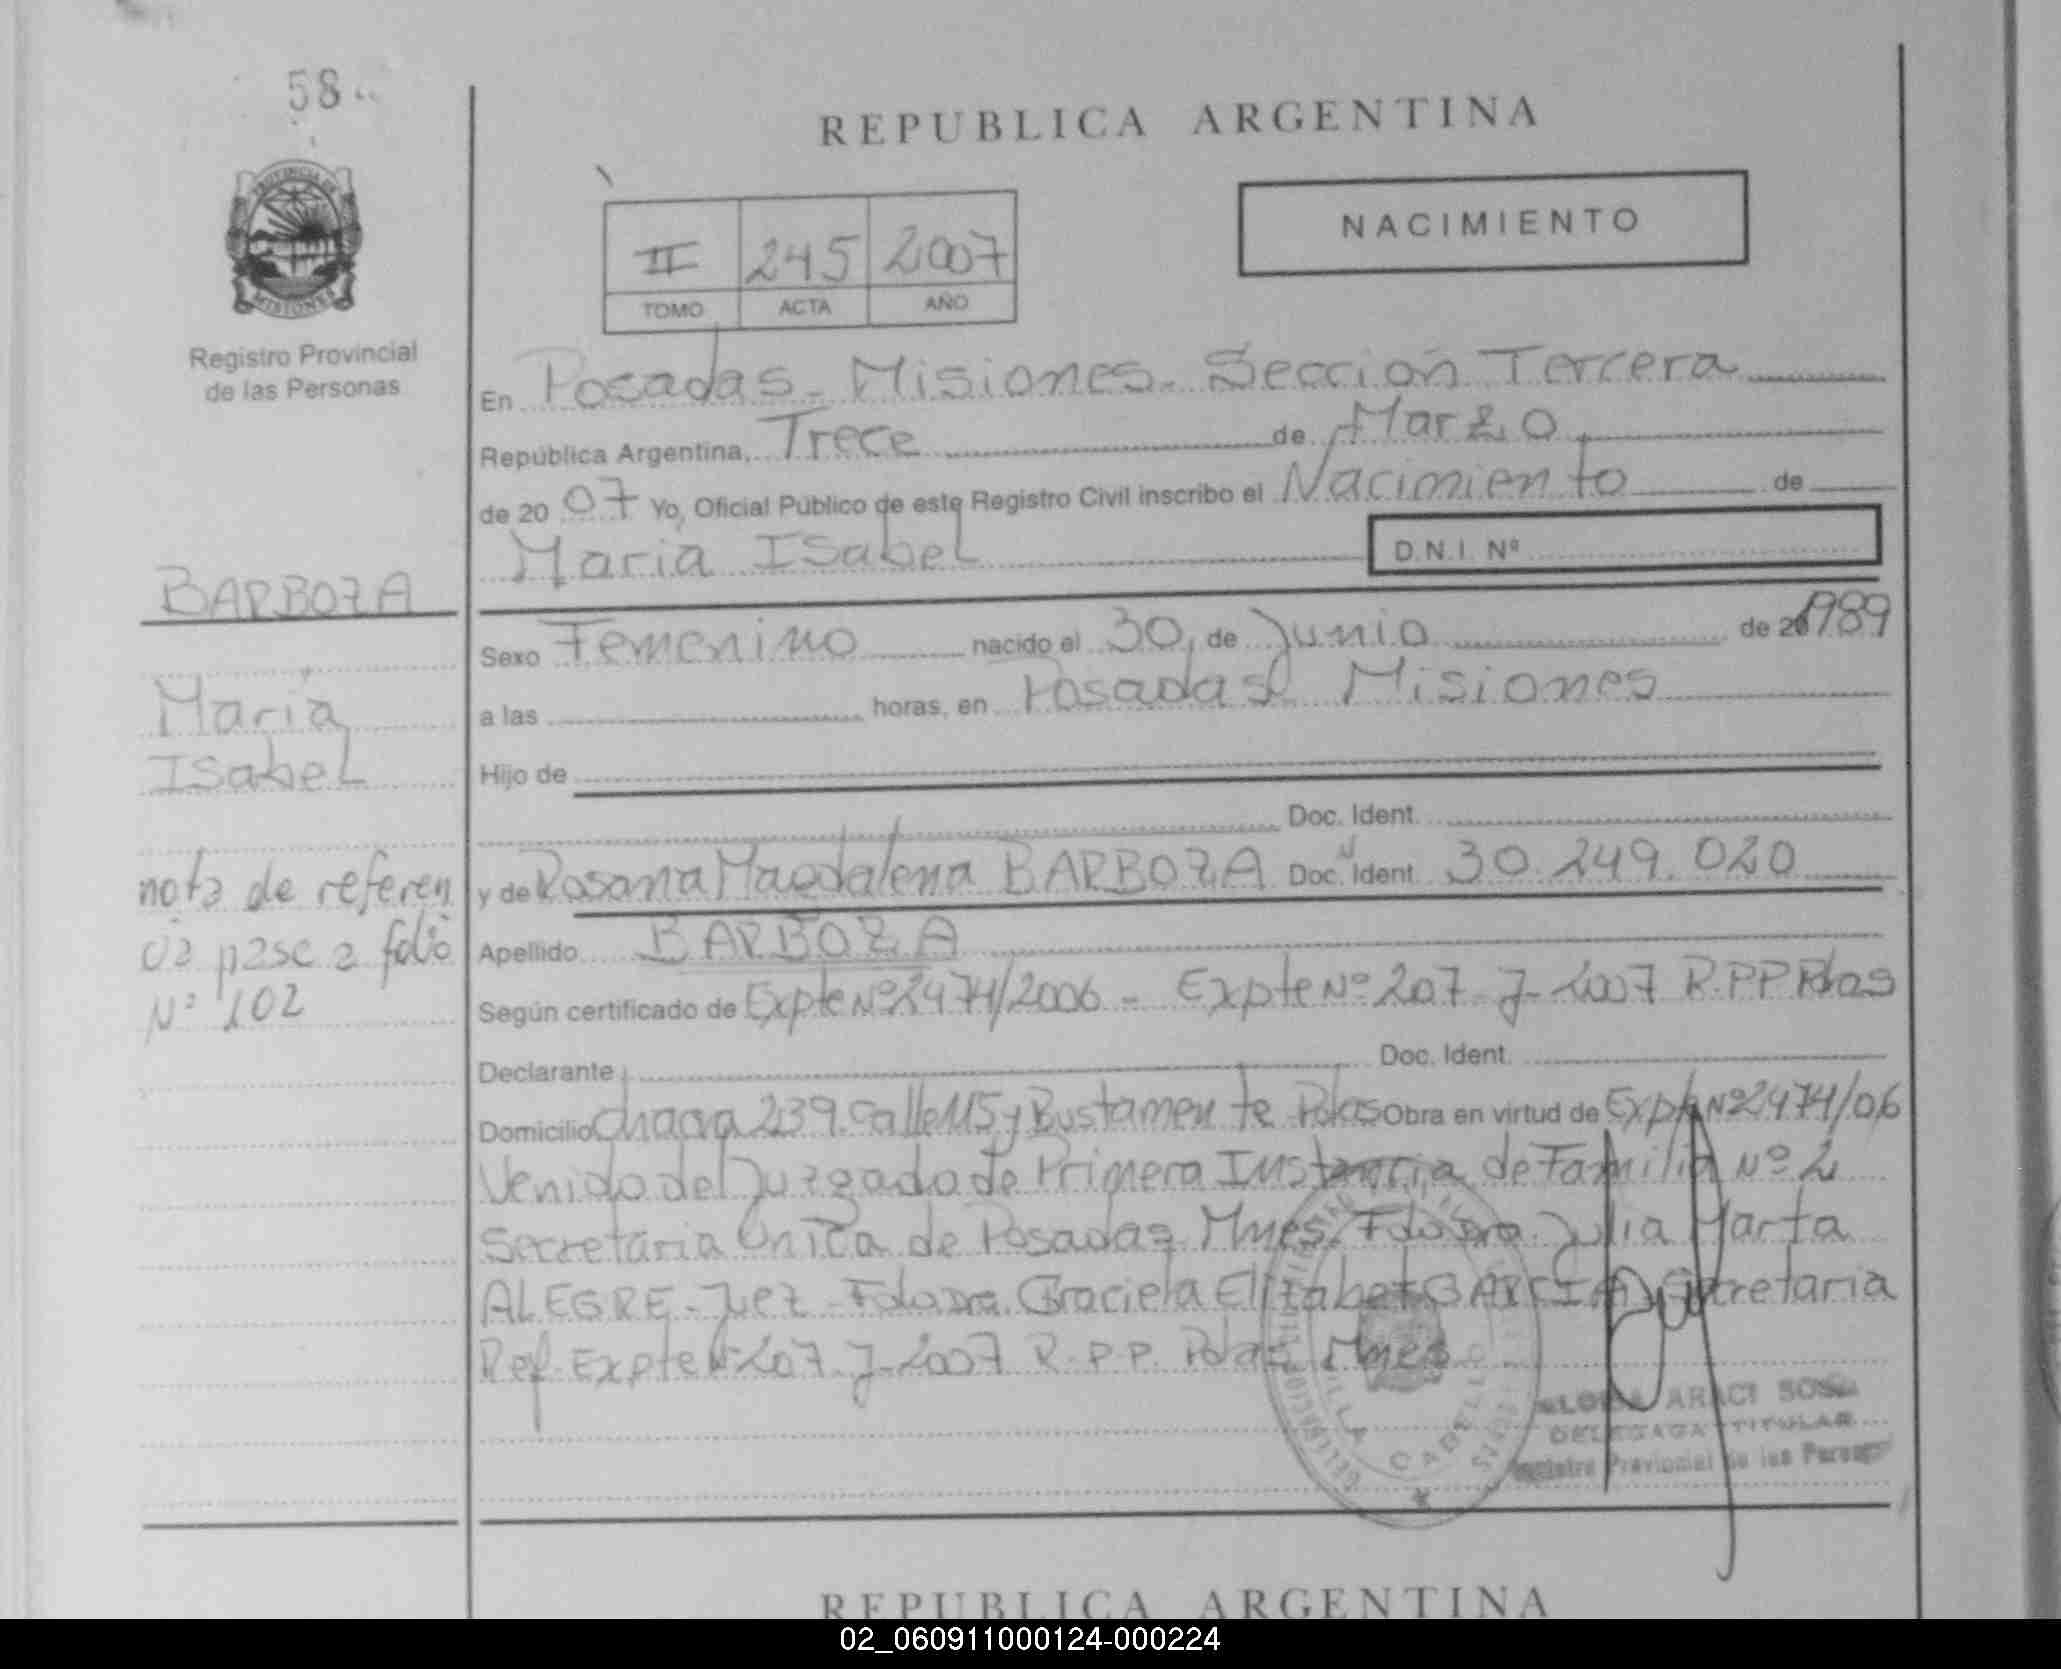 58
REPUBLICA ARGENTINA
PROVINCIA DE
MISIONES
II 245 2007
TOMO ACTA AÑO
NACIMIENTO
Registro Provincial
de las Personas
En Posadas - Misiones - Sección Tercera
República Argentina, Trece de Marzo
de 20 07 Yo, Oficial Público de este Registro Civil inscribo el Nacimiento de
Maria ISabel D.N.I. Nº
BARBOZA
Maria
ISabel
nota de referen
cia pase a folio
Nº 102
Sexo Femenino nacido el 30 de Junio de 20 1989
a las horas, en Posadas Misiones
Hijo de
Doc. Ident.
y de Rosana Magdalena BARBOZA Doc. Ident. 30.249.020
Apellido BARBOZA
Según certificado de Expte Nº 2474/2006 - Expte Nº 207-J-2007 R.P.P Pdas
Declarante Doc. Ident.
Domicilio Chacra 239 Calle 115 y Bustamente Pdas Obra en virtud de Expte Nº 2474/06
Venido del Juzgado de Primera Instancia de Familia Nº 2
Secretaria Unica de Posadas Mnes. Fdo Dra. Julia Marta
ALEGRE - Juez - Fdo Dra. Graciela Elizabet GARCIA Secretaria
Ref. Expte Nº 207-J-2007 R.P.P. Pdas Mnes
VILLA CABELLO
ARACI SOSA
DELEGADA TITULAR
Registro Provincial de las Personas
REPUBLICA ARGENTINA
02_060911000124-000224